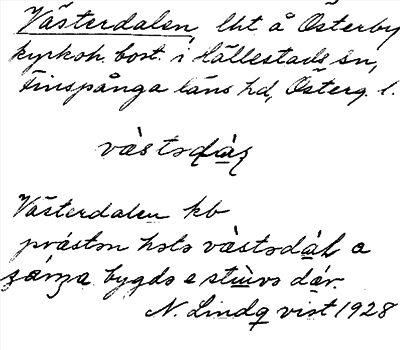 Västerdalen, lht å Österby
kyrkoh. bost. i Hällestads sn,
Finspånga läns hd, Österg. l.
vàstədáɭ
Västerdalen kb
prástən hətə vàstədáɭ a
bygdə e stùvə dár.
N. Lindqvist 1928